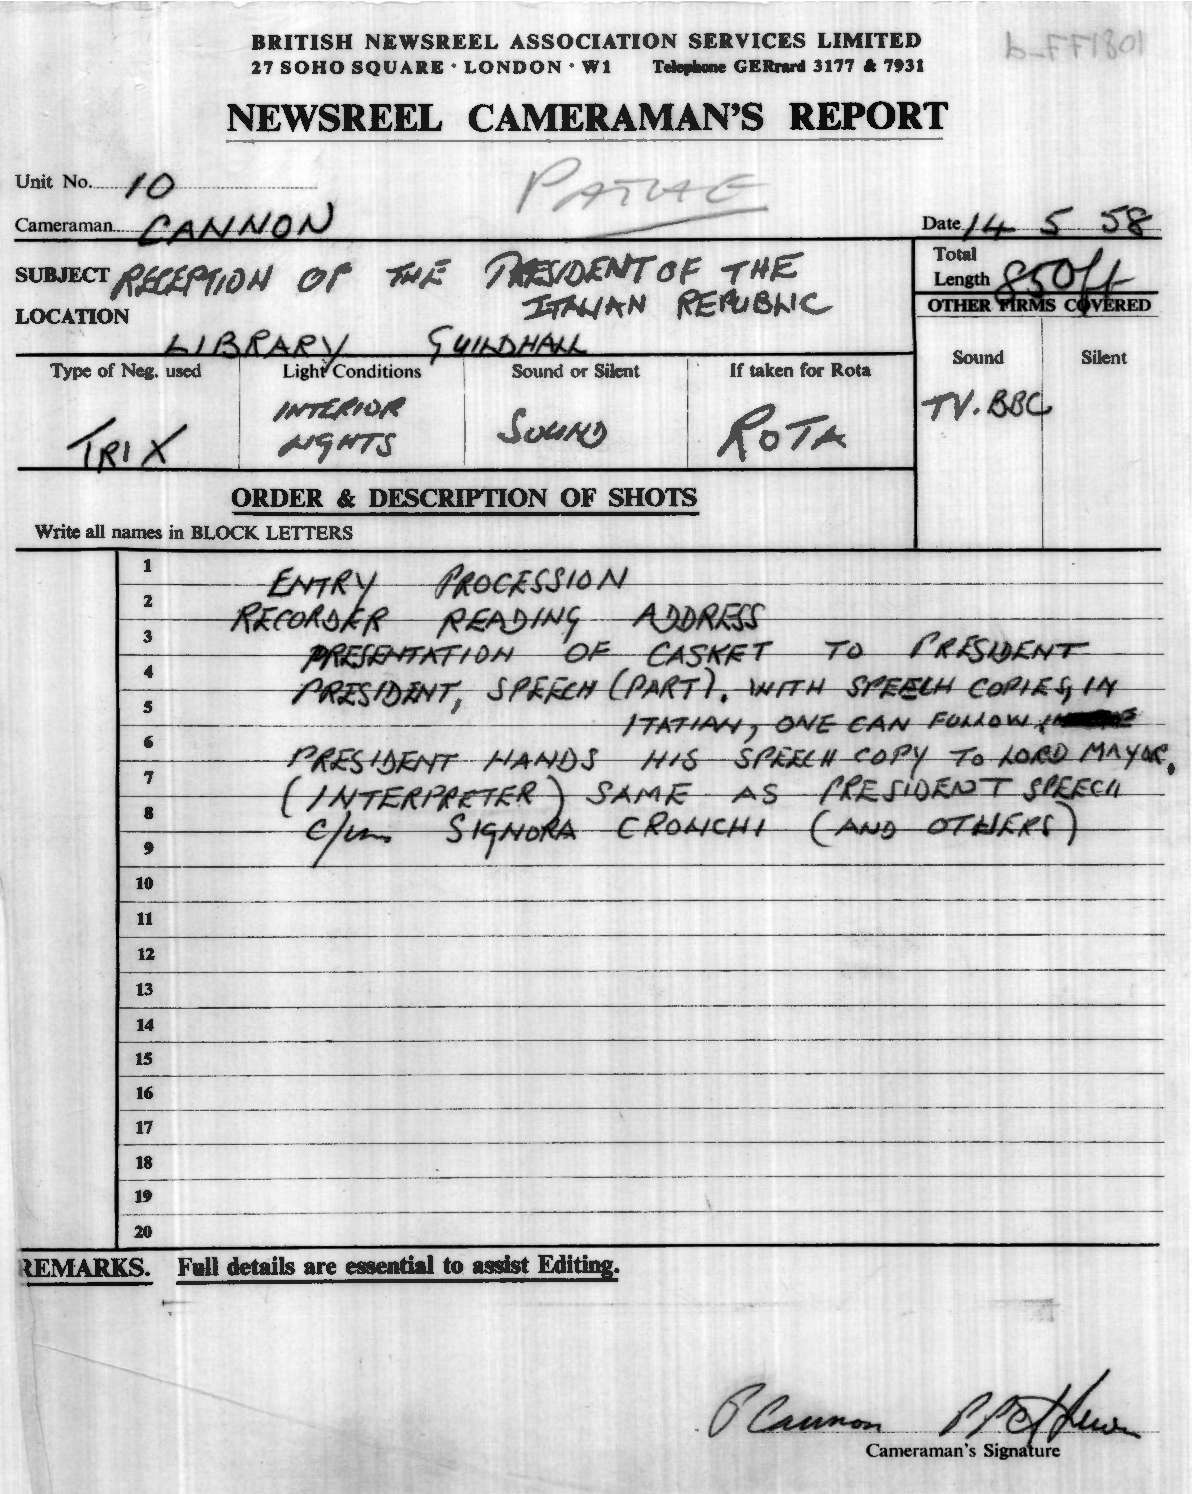 BRITISH NEWSREEL ASSOCIATION SERVICES LIMITED
27 SOHO SQUARE · LONDON · W1 Telephone GERrard 3177 & 7931
NEWSREEL CAMERAMAN'S REPORT
Unit No. 10 PATHE
Cameraman CANNON Date 14 5 58
SUBJECT RECEPTION OF THE PRESIDENT OF THE
ITALIAN REPUBLIC
Total
Length 850ft
LOCATION
LIBRARY GUILDHALL
OTHER FIRMS COVERED
Type of Neg. used Light Conditions Sound or Silent If taken for Rota Sound Silent
TRI X INTERIOR LIGHTS SOUND ROTA TV. BBC
ORDER & DESCRIPTION OF SHOTS
Write all names in BLOCK LETTERS
1 ENTRY PROCESSION
2 RECORDER READING ADDRESS
3 PRESENTATION OF CASKET TO PRESIDENT
4 PRESIDENT, SPEECH (PART). WITH SPEECH COPIES, IN
5 ITATIAN, ONE CAN FOLLOW
6 PRESIDENT HANDS HIS SPEECH COPY TO LORD MAYOR.
7 (INTERPRETER) SAME AS PRESIDENT SPEECH
8 C/U. SIGNORA CRONCHI (AND OTHERS)
9
10
11
12
13
14
15
16
17
18
19
20
REMARKS. Full details are essential to assist Editing.
P Cannon
Cameraman's Signature